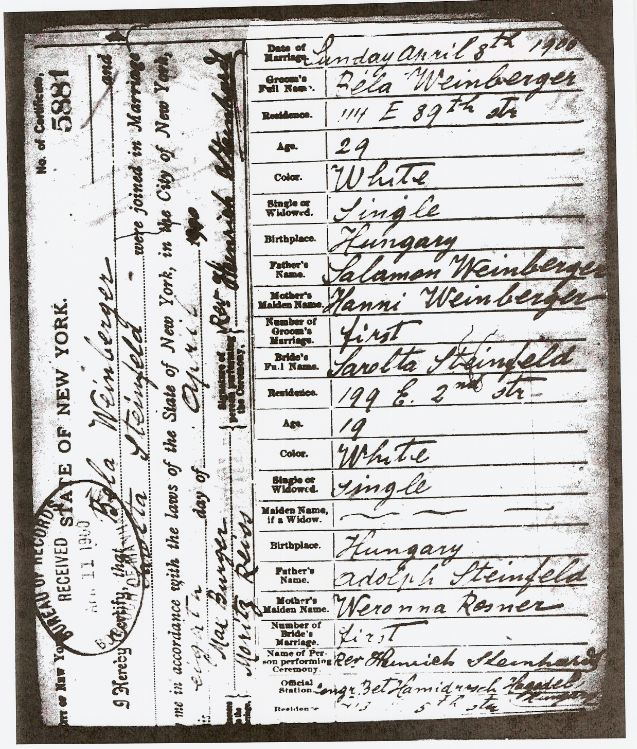 No. of Certificate,
5881
STATE OF NEW YORK.
I Hereby Certify, that Bela Weinberger and
Steinfeld were joined in Marriage
me in accordance with the laws of the State of New York, in the City of New York,
eighth day of April 1900
Signature of person performing the Ceremony. Rev Heinrich Steinhardt
Max Burger
Moritz Reiss
BUREAU OF RECORDS
RECEIVED
11 1900
Date of Marriage. Sunday April 8th 1900
Groom's Full Name. Béla Weinberger
Residence. 114 E 89th str
Age. 29
Color. White
Single or Widowed. Single
Birthplace. Hungary
Father's Name. Salamon Weinberger
Mother's Maiden Name. Hanni Weinberger
Number of Groom's Marriage. first
Bride's Full Name. Sarolta Steinfeld
Residence. 199 E. 2nd str
Age. 19
Color. White
Single or Widowed. Single
Maiden Name, if a Widow.
Birthplace. Hungary
Father's Name. Adolph Steinfeld
Mother's Maiden Name. Weronna Rosner
Number of Bride's Marriage. first
Name of Person performing Ceremony. Rev Heinrich Steinhardt
Official Station. Congr. Bet Hamidrasch
Residence 5th str